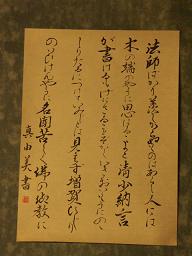 法師ばかり羨しからぬものはあらじ人には
木の端のやうに思はるゝよと清少納言
が書けるもげにさることぞかしいきほひまうにのゝ
しりたるにつけていみじとは見えず増賀ひじり
のいひけんやうに名聞苦しく佛の御教に
真由美書